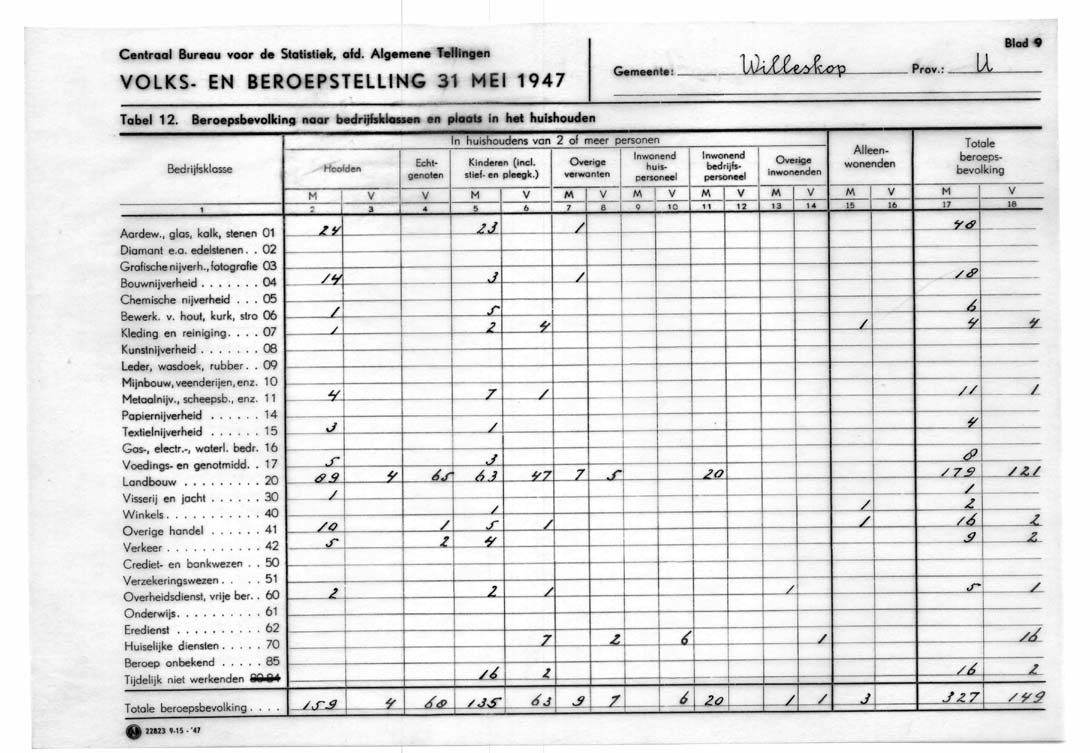 Centraal Bureau voor de Statistiek, afd. Algemene Tellingen
VOLKS- EN BEROEPSTELLING 31 MEI 1947
Gemeente: Willeskop Prov.: U
Blad 9
Tabel 12. Beroepsbevolking naar bedrijfsklassen en plaats in het huishouden
Bedrijfsklasse
In huishoudens van 2 of meer personen
Hoofden
Echt-
genoten
Kinderen (incl.
stief- en pleegk.)
Overige
verwanten
Inwonend
huis-
personeel
Inwonend
bedrijfs-
personeel
Overige
inwonenden
Alleen-
wonenden
Totale
beroeps-
bevolking
M V V M V M V M V M V M V M V M V
1 2 3 4 5 6 7 8 9 10 11 12 13 14 15 16 17 18
Aardew., glas, kalk, stenen 01 24 23 1 48
Diamant e.a. edelstenen. . 02
Grafische nijverh., fotografie 03
Bouwnijverheid . . . . . . . 04 14 3 1 18
Chemische nijverheid . . . 05
Bewerk. v. hout, kurk, stro 06 1 5 6
Kleding en reiniging. . . . 07 1 2 4 1 4 4
Kunstnijverheid . . . . . . . 08
Leder, wasdoek, rubber. . 09
Mijnbouw, veenderijen, enz. 10
Metaalnijv., scheepsb., enz. 11 4 7 1 11 1
Papiernijverheid . . . . . . 14
Textielnijverheid . . . . . . 15 3 1 4
Gas-, electr.-, waterl. bedr. 16
Voedings- en genotmidd. . 17 5 3 8
Landbouw . . . . . . . . . 20 89 4 65 63 47 7 5 20 179 121
Visserij en jacht . . . . . . 30 1 1
Winkels. . . . . . . . . . . 40 1 1 2
Overige handel . . . . . . 41 10 1 5 1 1 16 2
Verkeer . . . . . . . . . . . 42 5 2 4 9 2
Crediet- en bankwezen . . 50
Verzekeringswezen . . . . 51
Overheidsdienst, vrije ber. . 60 2 2 1 1 5 1
Onderwijs. . . . . . . . . . 61
Eredienst . . . . . . . . . . 62
Huiselijke diensten. . . . . 70 7 2 6 1 16
Beroep onbekend . . . . . 85
Tijdelijk niet werkenden 90-94 16 2 16 2
Totale beroepsbevolking. . . . 159 4 68 135 63 9 7 6 20 1 1 3 327 149
22823 9-15-'47